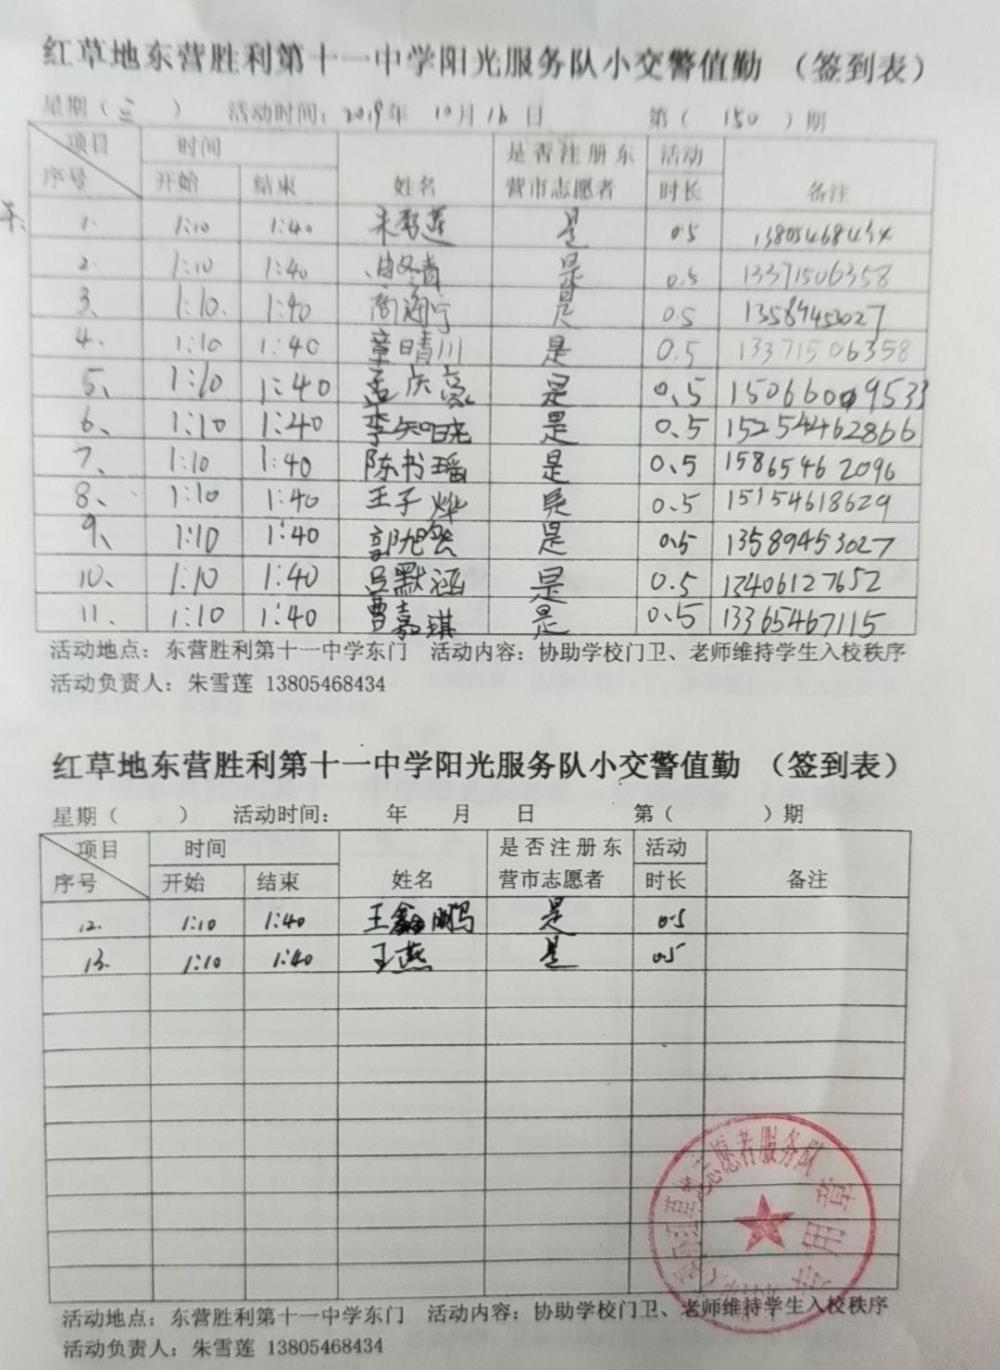 红草地东营胜利第十一中学阳光服务队小交警值勤 （签到表）
星期（三 ） 活动时间：2019年 10月16日 第（ 150 ）期
项目 时间 是否注册东 活动
序号 开始 结束 姓名 营市志愿者 时长 备注
1. 1:10 1:40 朱雪莲 是 0.5 138054684
2. 1:10 1:40 冬青 是 0.5 13371506358
3. 1:10. 1:40 商海宁 是 0.5 13589453027
4. 1:10 1:40 章晴川 是 0.5 13371506358
5、 1:10 1:40 孟庆豪 是 0.5 15066009533
6、 1:10 1:40 李知晓 是 0.5 15254462866
7、 1:10 1:40 陈书瑶 是 0.5 15865462096
8、 1:10 1:40 王子烨 是 0.5 15154618629
9、 1:10 1:40 郭 是 0.5 13589453027
10、 1:10 1:40 吕默涵 是 0.5 13406127652
11. 1:10 1:40 曹嘉琪 是 0.5 13365467115
活动地点：东营胜利第十一中学东门 活动内容：协助学校门卫、老师维持学生入校秩序
活动负责人：朱雪莲 13805468434
红草地东营胜利第十一中学阳光服务队小交警值勤 （签到表）
星期（ ） 活动时间： 年 月 日 第（ ）期
项目 时间 是否注册东 活动
序号 开始 结束 姓名 营市志愿者 时长 备注
12. 1:10 1:40 王鑫鹏 是 0.5
13. 1:10 1:40 王燕 是 0.5
志愿者服务队
专用章
活动地点：东营胜利第十一中学东门 活动内容：协助学校门卫、老师维持学生入校秩序
活动负责人：朱雪莲 13805468434